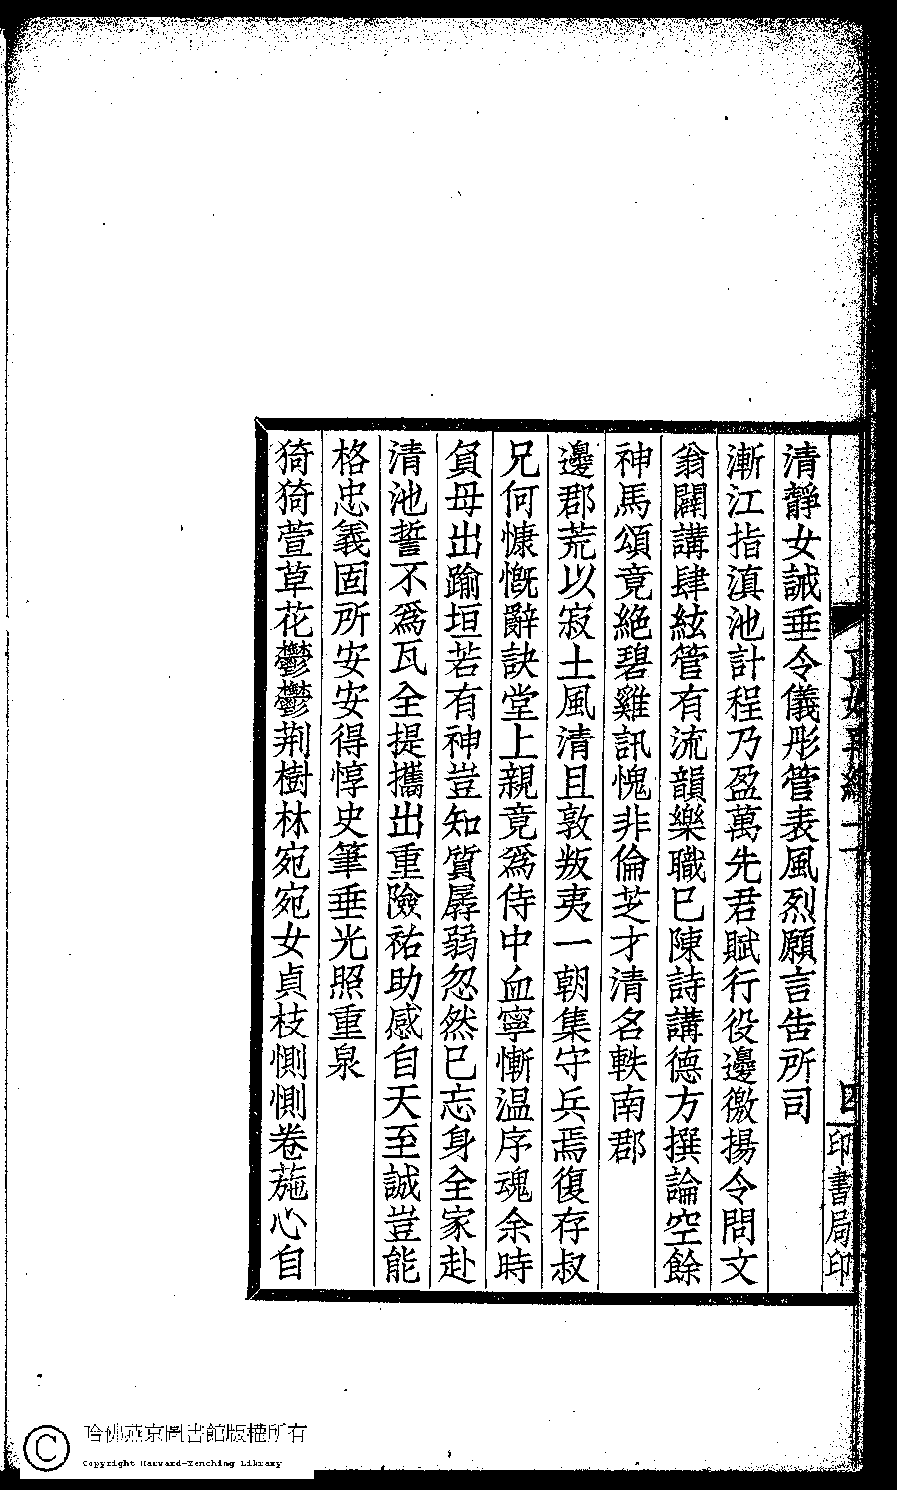 清靜女誡垂令儀彤管表風烈願言告所司
漸江指滇池計程乃盈萬先君賦行役邊徼揚令問文
翁闢講肆絃管有流韻樂職已陳詩講德方撰論空餘
神馬頌竟絕碧雞訊愧非倫芝才清名軼南郡
邊郡荒以寂土風清且敦叛夷一朝集守兵焉復存叔
兄何慷慨辭訣堂上親竟爲侍中血寧慚温序魂余時
負母出踰垣若有神豈知質孱弱忽然已忘身全家赴
清池誓不爲瓦全提攜出重險祐助感自天至誠豈能
格忠義固所安安得惇史筆垂光照重泉
猗猗萱草花鬱鬱荆樹林宛宛女貞枝惻惻卷葹心自
四
印書局印
哈佛燕京圖書館版權所有
Copyright Harvard-Yenching Library